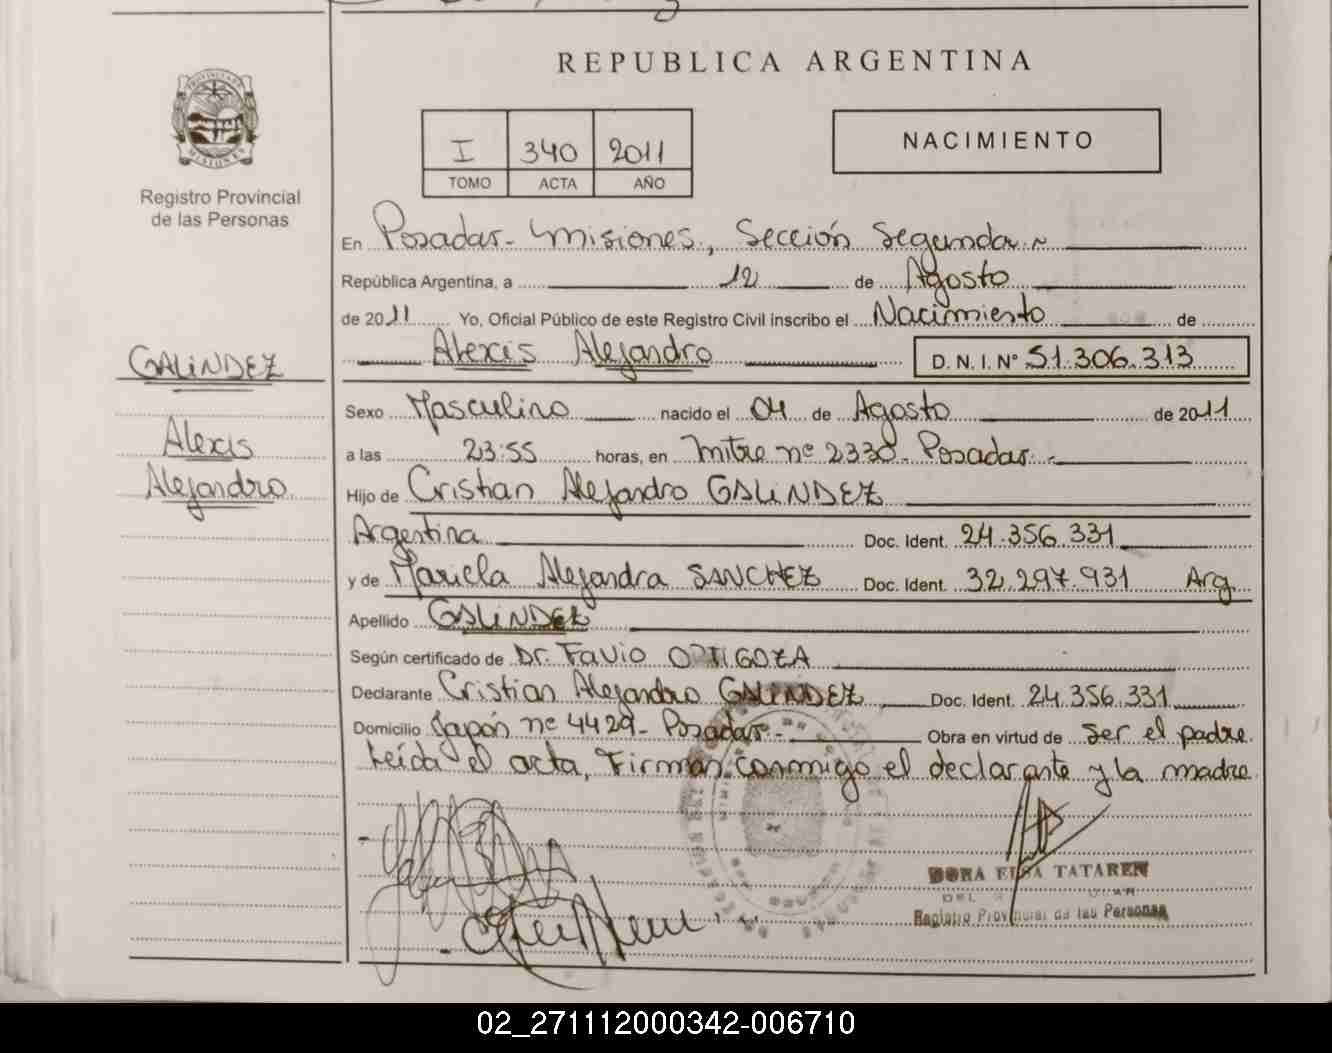 REPUBLICA ARGENTINA
PROVINCIA DE
MISIONES
Registro Provincial
de las Personas
I 340 2011
TOMO ACTA AÑO
NACIMIENTO
En Posadas - Misiones, Sección Segunda
República Argentina, a 12 de Agosto
de 2011 Yo, Oficial Público de este Registro Civil inscribo el Nacimiento de
Alexis Alejandro D. N. I. Nº 51.306.313
GALINDEZ
Alexis
Alejandro
Sexo Masculino nacido el 04 de Agosto de 2011
a las 23:55 horas, en Mitre nº 2330 - Posadas -
Hijo de Cristian Alejandro GALINDEZ
Argentina Doc. Ident. 24.356.331
y de Mariela Alejandra SANCHEZ Doc. Ident. 32.297.931 Arg.
Apellido GALINDEZ
Según certificado de Dr. FAVIO ORTIGOZA
Declarante Cristian Alejandro GALINDEZ Doc. Ident. 24.356.331
Domicilio Japón nº 4429 - Posadas - Obra en virtud de ser el padre.
Leída el acta, Firman conmigo el declarante y la madre
DORA ELSA TATAREN
Registro Provincial de las Personas
02_271112000342-006710